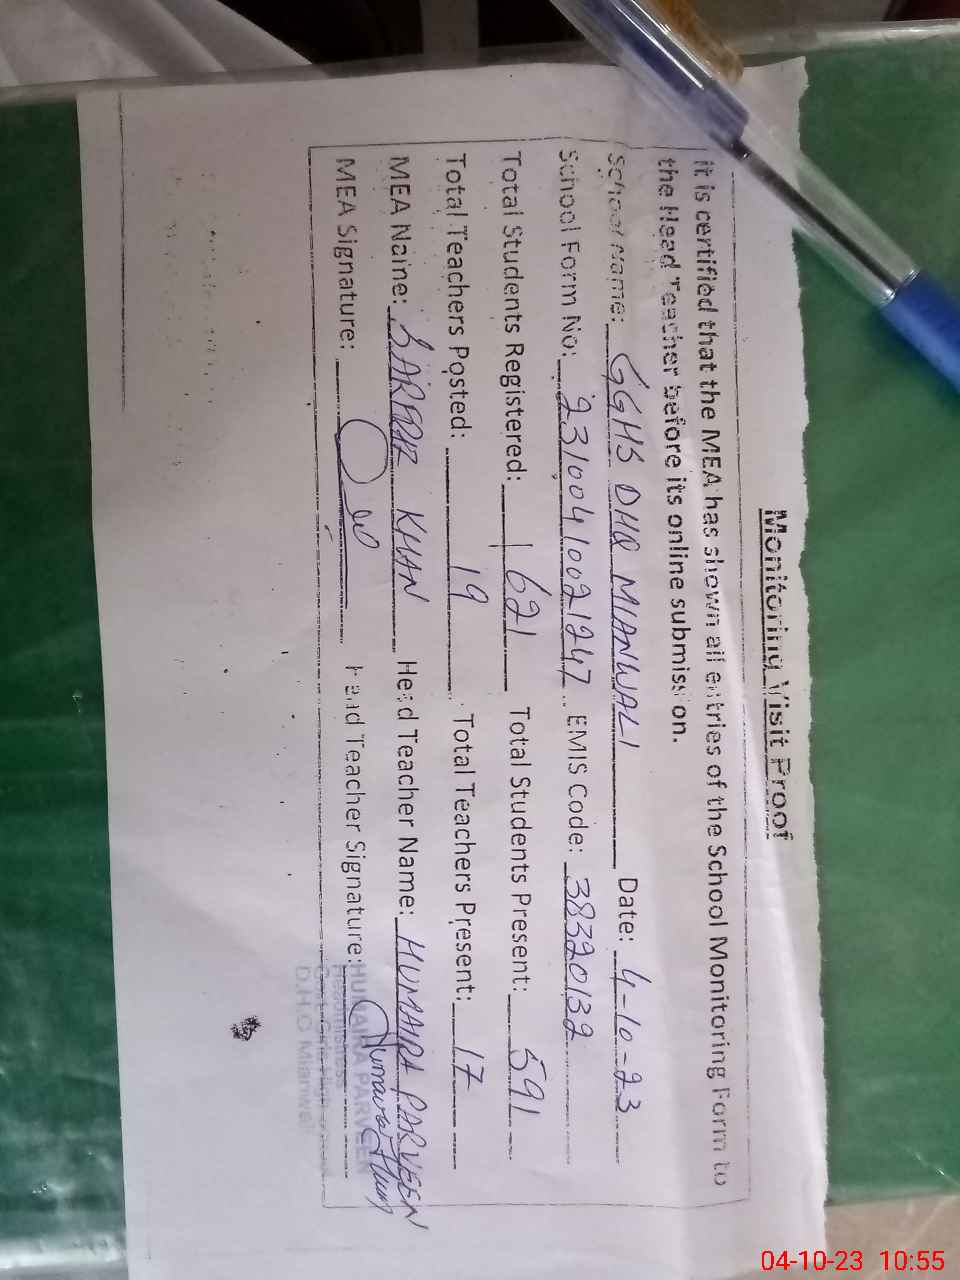 Monitoring Visit Proof
It is certified that the MEA has shown all entries of the School Monitoring Form to
the Head Teacher before its online submission.
School Name: GGHS DHQ MIANWALI Date: 4-10-23
School Form No: 23100410021247 EMIS Code: 38320132
Total Students Registered: 621 Total Students Present: 591
Total Teachers Posted: 19 Total Teachers Present: 17
MEA Name: SARFRAZ KHAN Head Teacher Name: HUMAIRA PARVEEN
MEA Signature: Head Teacher Signature:
HUMAIRA PARVEEN
Headmistress
Govt. Girls High
D.H.Q Mianwali
04-10-23 10:55